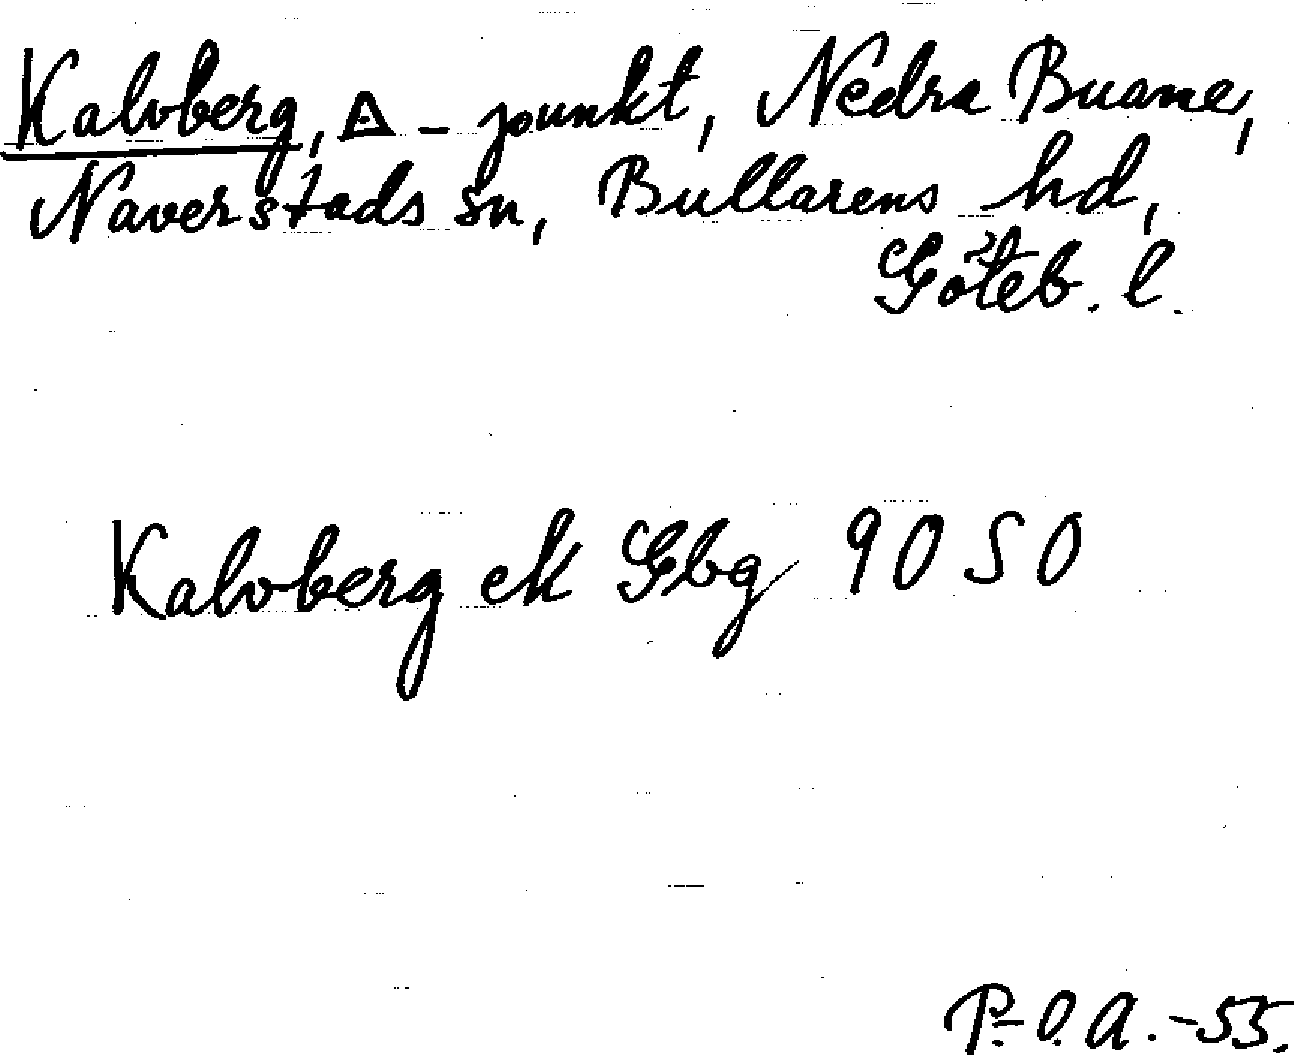 Kalvberg, △ - punkt, Nedra Buane,
Naverstads sn, Bullarens hd,
Göteb. l.
Kalvberg ek Gbg 9050
P.-O.A.-55.